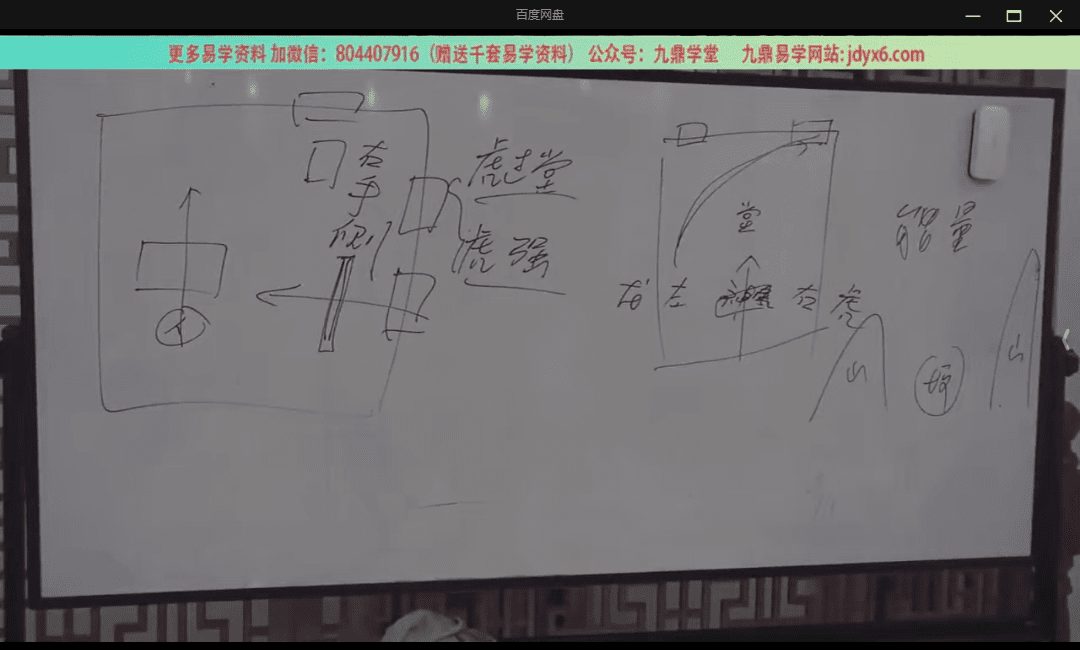 百度网盘
更多易学资料 加微信：804407916（赠送千套易学资料） 公众号：九鼎学堂 九鼎易学网站:jdyx6.com
右手
侧
虎过堂
虎强
堂
左
右
虎
能量
山
山